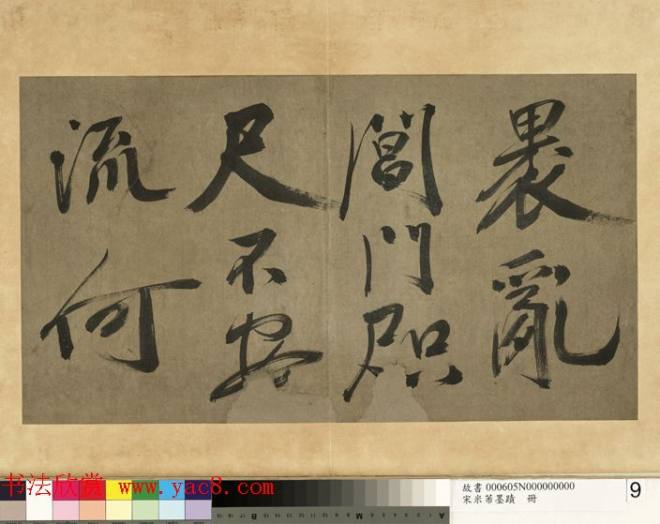 褁亂
閶門咫
尺不安
流何
书法欣赏 www.yac8.com
故書 000605N000000000
宋米芾墨蹟 冊
9